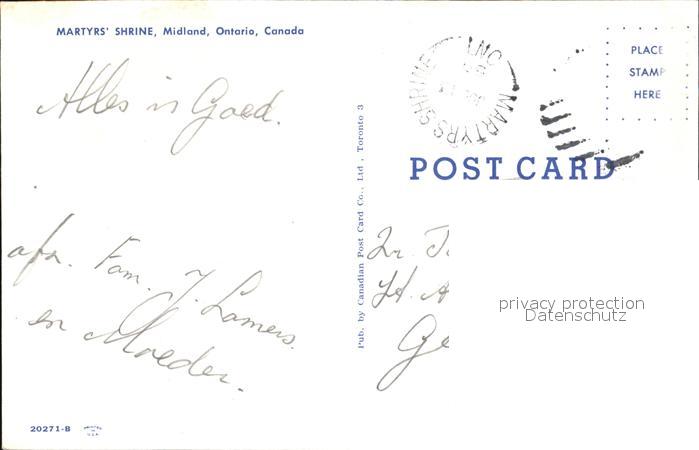 MARTYRS' SHRINE, Midland, Ontario, Canada
Alles is Goed.
afz. Fam. J. Lamers.
en Moeder.
20271-B
PRINTED IN U.S.A.
Pub. by Canadian Post Card Co., Ltd., Toronto 3
MARTYRS SHRINE ONT
PLACE
STAMP
HERE
POST CARD
privacy protection
Datenschutz